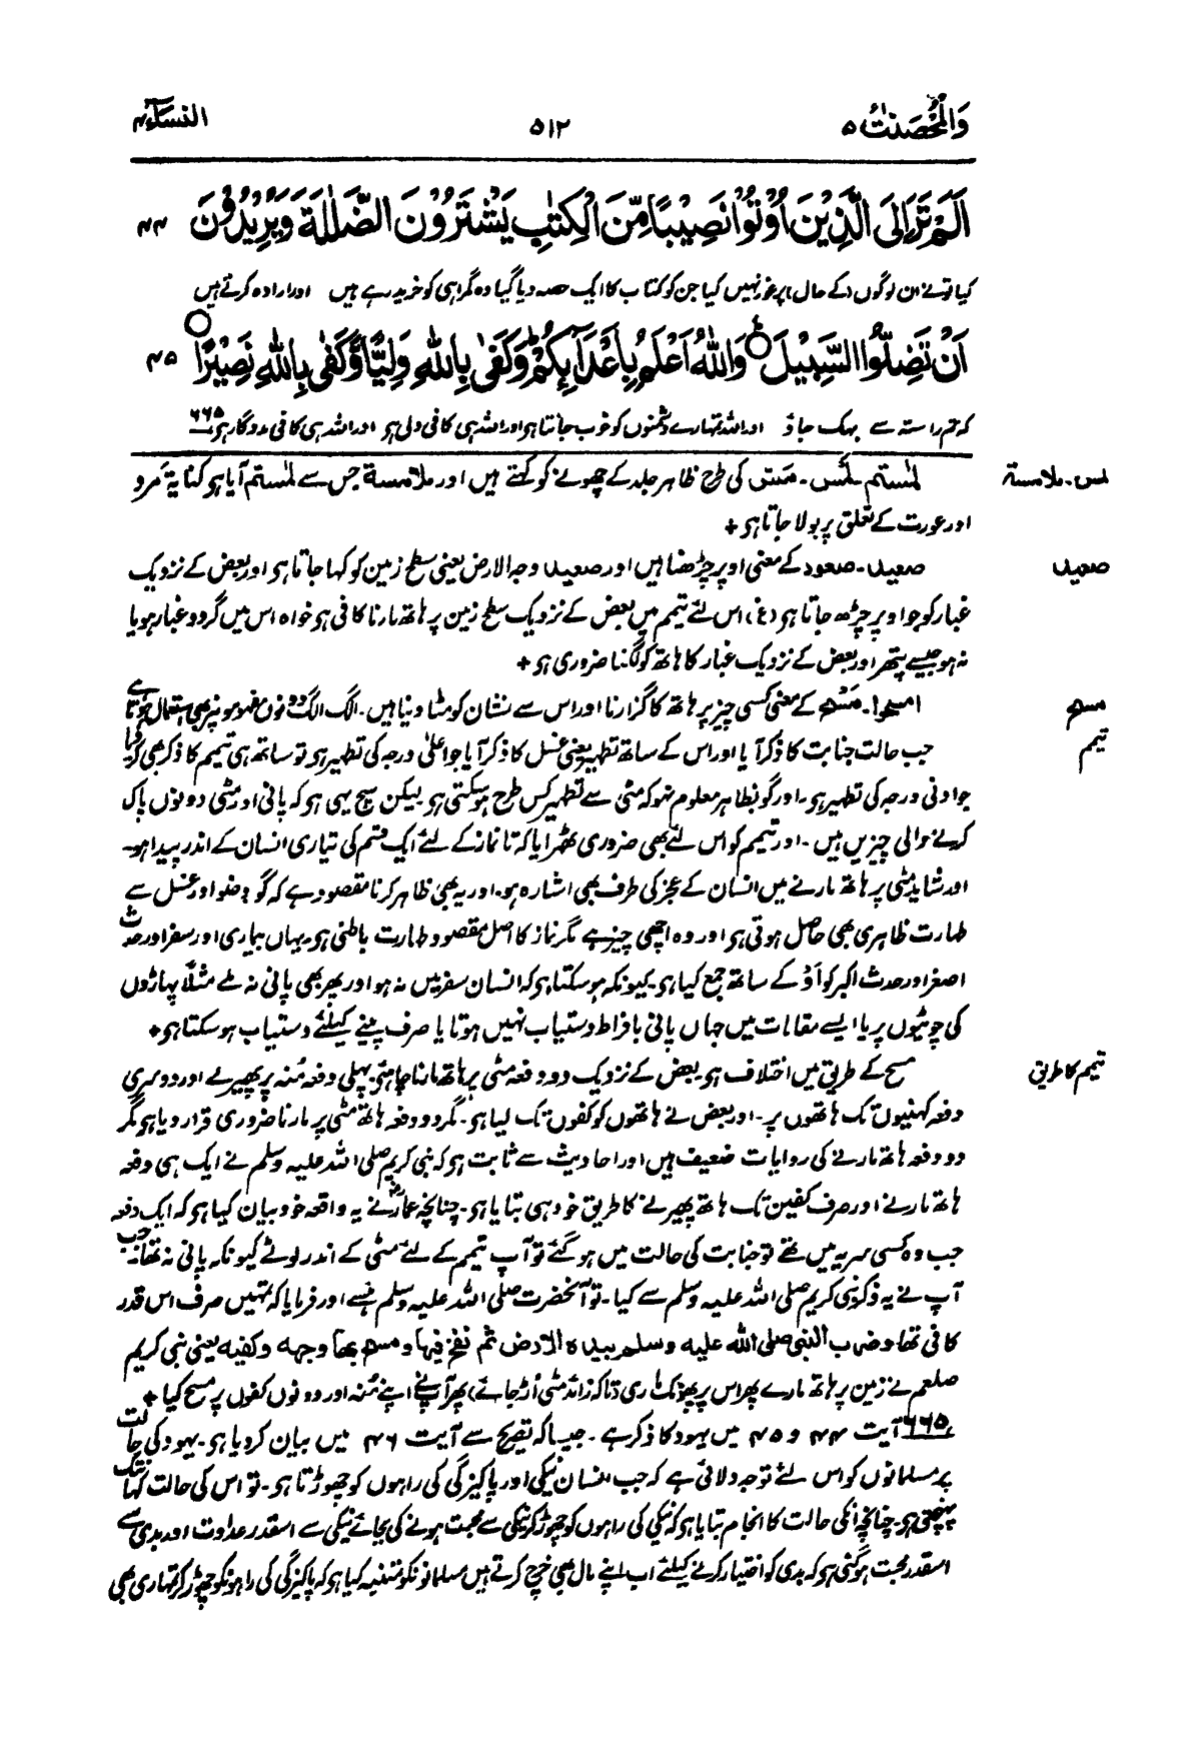 وَالْمُحْصَنٰتُ ٥
٥١٢
النسآء ٤
اَلَمْ تَرَ اِلَى الَّذِيْنَ اُوْتُوْا نَصِيْبًا مِّنَ الْكِتٰبِ يَشْتَرُوْنَ الضَّلٰلَةَ وَيُرِيْدُوْنَ ۴۴
کیا تونے ان لوگوں (کے حال) پر غور نہیں کیا جن کو کتاب کا ایک حصہ دیا گیا وہ گمراہی کو خرید رہے ہیں اور ارادہ کرتے ہیں
اَنْ تَضِلُّوا السَّبِيْلَ ○ وَاللّٰهُ اَعْلَمُ بِاَعْدَآئِكُمْ وَكَفٰى بِاللّٰهِ وَلِيًّا وَّكَفٰى بِاللّٰهِ نَصِيْرًا ○ ۴۵
کہ تم راستہ سے بہک جاؤ اور اللہ تمہارے دشمنوں کو خوب جانتا ہو اور اللہ ہی کافی ولی ہو اور اللہ ہی کافی مددگار ہو ۶۶۵
لمس۔ ملامسة
لٰمستم۔ لَمْس۔ مَسّ کی طرح ظاہر جلد کے چھونے کو کہتے ہیں اور ملامسة جس سے لٰمستم آیا ہو کنایۃً مرد
اور عورت کے تعلق پر بولا جاتا ہو +
صعید
صعید۔ صعود کے معنی اوپر چڑھنا ہیں اور صعید وجہ الارض یعنی سطح زمین کو کہا جاتا ہو اور بعض کے نزدیک
غبار کو جو اوپر چڑھ جاتا ہو (غ) اس لئے تیمم میں بعض کے نزدیک سطح زمین پر ہاتھ مارنا کافی ہو خواہ اس میں گرد و غبار ہو یا
نہ ہو جیسے پتھر اور بعض کے نزدیک غبار کا ہاتھ کو لگنا ضروری ہو +
مسح
امسحوا۔ مَسْح کے معنی کسی چیز پر ہاتھ کا گزارنا اور اس سے نشان کو مٹا دینا ہیں۔ الگ الگ دونوں مفہوموں پر بھی استعمال ہوتا ہے
تیمم
جب حالت جنابت کا ذکر آیا اور اس کے ساتھ تطہیر یعنی غسل کا ذکر آیا جو اعلیٰ درجہ کی تطہیر ہو تو ساتھ ہی تیمم کا ذکر بھی کر دیا
جو ادنی درجہ کی تطہیر ہو۔ اور گو بظاہر معلوم نہ ہو کہ مٹی سے تطہیر کس طرح ہو سکتی ہو لیکن سچ یہی ہو کہ پانی اور مٹی دونوں پاک
کرنے والی چیزیں ہیں۔ اور تیمم کو اس لئے بھی ضروری ٹھہرایا کہ تا نماز کے لئے ایک قسم کی تیاری انسان کے اندر پیدا ہو۔
اور شاید مٹی پر ہاتھ مارنے میں انسان کے عجز کی طرف بھی اشارہ ہو۔ اور یہ بھی ظاہر کرنا مقصود ہے کہ گو وضو اور غسل سے
طہارت ظاہری بھی حاصل ہوتی ہو اور وہ اچھی چیز ہے مگر نماز کا اصل مقصود طہارت باطنی ہو۔ یہاں بیماری اور سفر اور حدث
اصغر اور حدث اکبر کو اَوْ کے ساتھ جمع کیا ہو۔ کیونکہ ہو سکتا ہو کہ انسان سفر میں نہ ہو اور پھر بھی پانی نہ ملے مثلاً پہاڑوں
کی چوٹیوں پر یا ایسے مقامات میں جہاں پانی بافراط دستیاب نہیں ہوتا یا صرف پینے کیلئے دستیاب ہو سکتا ہو +
تیمم کا طریق
مسح کے طریق میں اختلاف ہو۔ بعض کے نزدیک دو دفعہ مٹی پر ہاتھ مارنا چاہئے۔ پہلی دفعہ مُنہ پر پھیرے اور دوسری
دفعہ کہنیوں تک ہاتھوں پر۔ اور بعض نے ہاتھوں کو کفوں تک لیا ہو۔ گر دو دفعہ ہاتھ مٹی پر مارنا ضروری قرار دیا ہو مگر
دو دفعہ ہاتھ مارنے کی روایات ضعیف ہیں اور احادیث سے ثابت ہو کہ نبی کریم صلی اللہ علیہ وسلم نے ایک ہی دفعہ
ہاتھ مارنے اور صرف کفین تک ہاتھ پھیرنے کا طریق خود ہی بتایا ہو۔ چنانچہ عمارؓ نے یہ واقعہ خود بیان کیا ہو کہ ایک دفعہ
جب وہ کسی سریہ میں تھے تو جنابت کی حالت میں ہو گئے تو آپ تیمم کے لئے مٹی کے اندر لوٹے کیونکہ پانی نہ تھا۔ جب
آپ نے یہ ذکر نبی کریم صلی اللہ علیہ وسلم سے کیا۔ تو آنحضرت صلی اللہ علیہ وسلم ہنسے اور فرمایا کہ تمہیں صرف اس قدر
کافی تھا وضرب النبی صلی اللہ علیه وسلم بیدہ الارض ثم نفخ فیها ومسح بها وجهه وکفیه یعنی نبی کریم
صلعم نے زمین پر ہاتھ مارے پھر اس پر پھونک ماری (تاکہ زائد مٹی اُڑ جائے) پھر آپنے اپنے مُنہ اور دونوں کفوں پر مسح کیا +
۶۶۵ آیت ۴۴ و ۴۵ میں یہود کا ذکر ہے۔ جیسا کہ تصریح سے آیت ۴۶ میں بیان کر دیا ہو۔ یہود کی حالت
پر مسلمانوں کو اس لئے توجہ دلائی ہے کہ جب انسان نیکی اور پاکیزگی کی راہوں کو چھوڑتا ہو۔ تو اس کی حالت کہاں تک
پہنچتی ہو۔ چنانچہ انکی حالت کا انجام بتایا ہو کہ نیکی کی راہوں کو چھوڑ کر نیکی سے محبت ہونے کی بجائے نیکی سے اسقدر عداوت اور بدی سے
اسقدر محبت ہو گئی ہو کہ بدی کو اختیار کرنے کیلئے اب اپنے مال بھی خرچ کرتے ہیں مسلمانوں کو متنبہ کیا ہو کہ پاکیزگی کی راہونکو چھوڑ کر تمہاری بھی